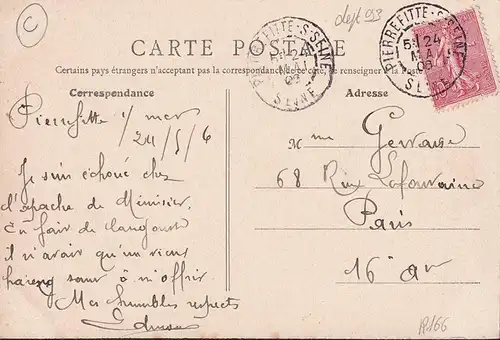 C
dept 93
CARTE POSTALE
Certains pays étrangers n'acceptent pas la correspondance de ce côté, se renseigner à la Poste
PIERREFITTE-S-SEINE
5E 24
MAI
06
SEINE
PIERREFITTE-S-SEINE
5E 24
MAI
06
SEINE
Correspondance
Adresse
Pierrefitte s/ mer
24/5/6
Je suis échoué chez
l'apache de
En fait de langouste
il n'avait qu'un vieux
hareng saur à m'offrir.
Mes humbles respects
Mme
68 Rue
Paris
16e arr
P.166